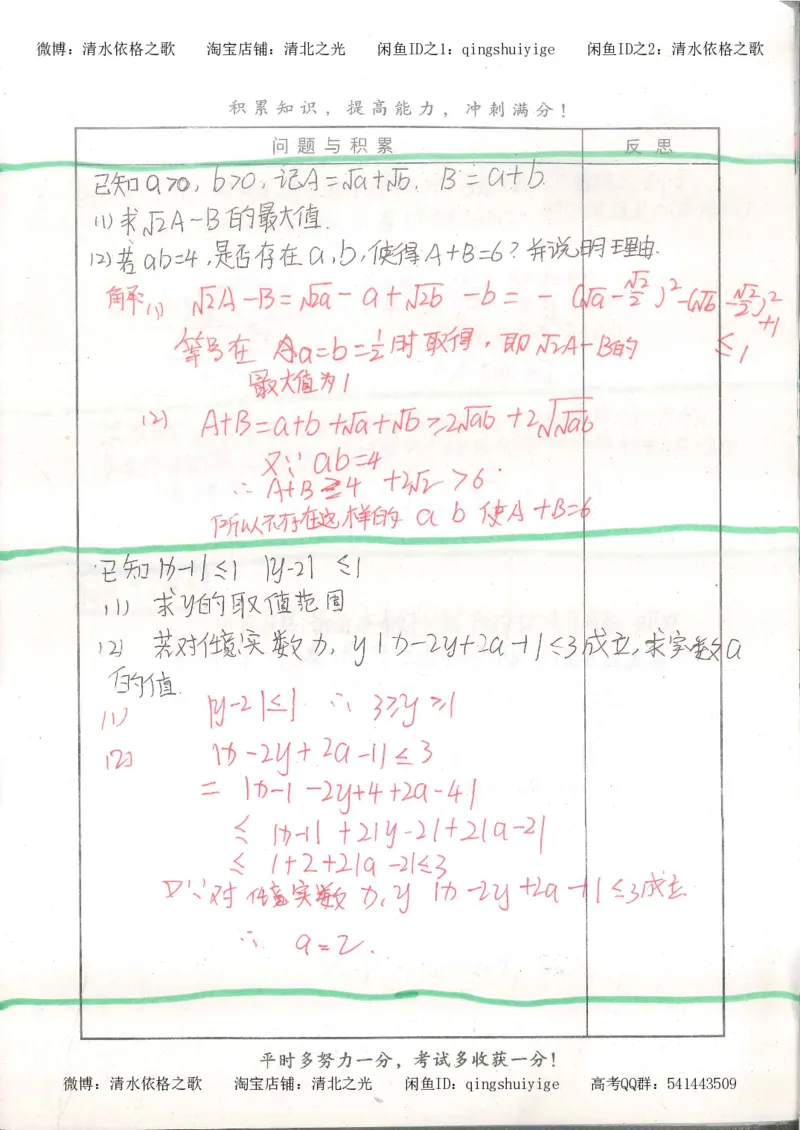 微博：清水依格之歌 淘宝店铺：清北之光 闲鱼ID之1：qingshuiyige 闲鱼ID之2：清水依格之歌
积累知识，提高能力，冲刺满分！
问题与积累 反思
已知a>0，b>0，记A=√a+√b，B=a+b.
(1)求√2A-B的最大值.
(2)若ab=4，是否存在a，b，使得A+B=6？并说明理由.
解：(1) √2A-B=√2a-a+√2b-b=-(√a-√2/2)²-(√b-√2/2)²+1
等号在 a=b=1/2时取得，即√2A-B的 ≤1
最大值为1
(2) A+B=a+b+√a+√b≥2√ab+2√√ab
又∵ab=4
∴A+B≥4+2√2>6.
所以不存在这样的 a b 使A+B=6
已知|x-1|≤1 |y-2|≤1
(1) 求y的取值范围
(2) 若对任意实数x，y |x-2y+2a-1|≤3成立，求实数a
的值.
(1) |y-2|≤1 ∴3≥y≥1
(2) |x-2y+2a-1|≤3
=|x-1-2y+4+2a-4|
≤|x-1|+2|y-2|+2|a-2|
≤1+2+2|a-2|≤3
又∵对任意实数x，y |x-2y+2a-1|≤3成立
∴ a=2.
平时多努力一分，考试多收获一分！
微博：清水依格之歌 淘宝店铺：清北之光 闲鱼ID：qingshuiyige 高考QQ群：541443509